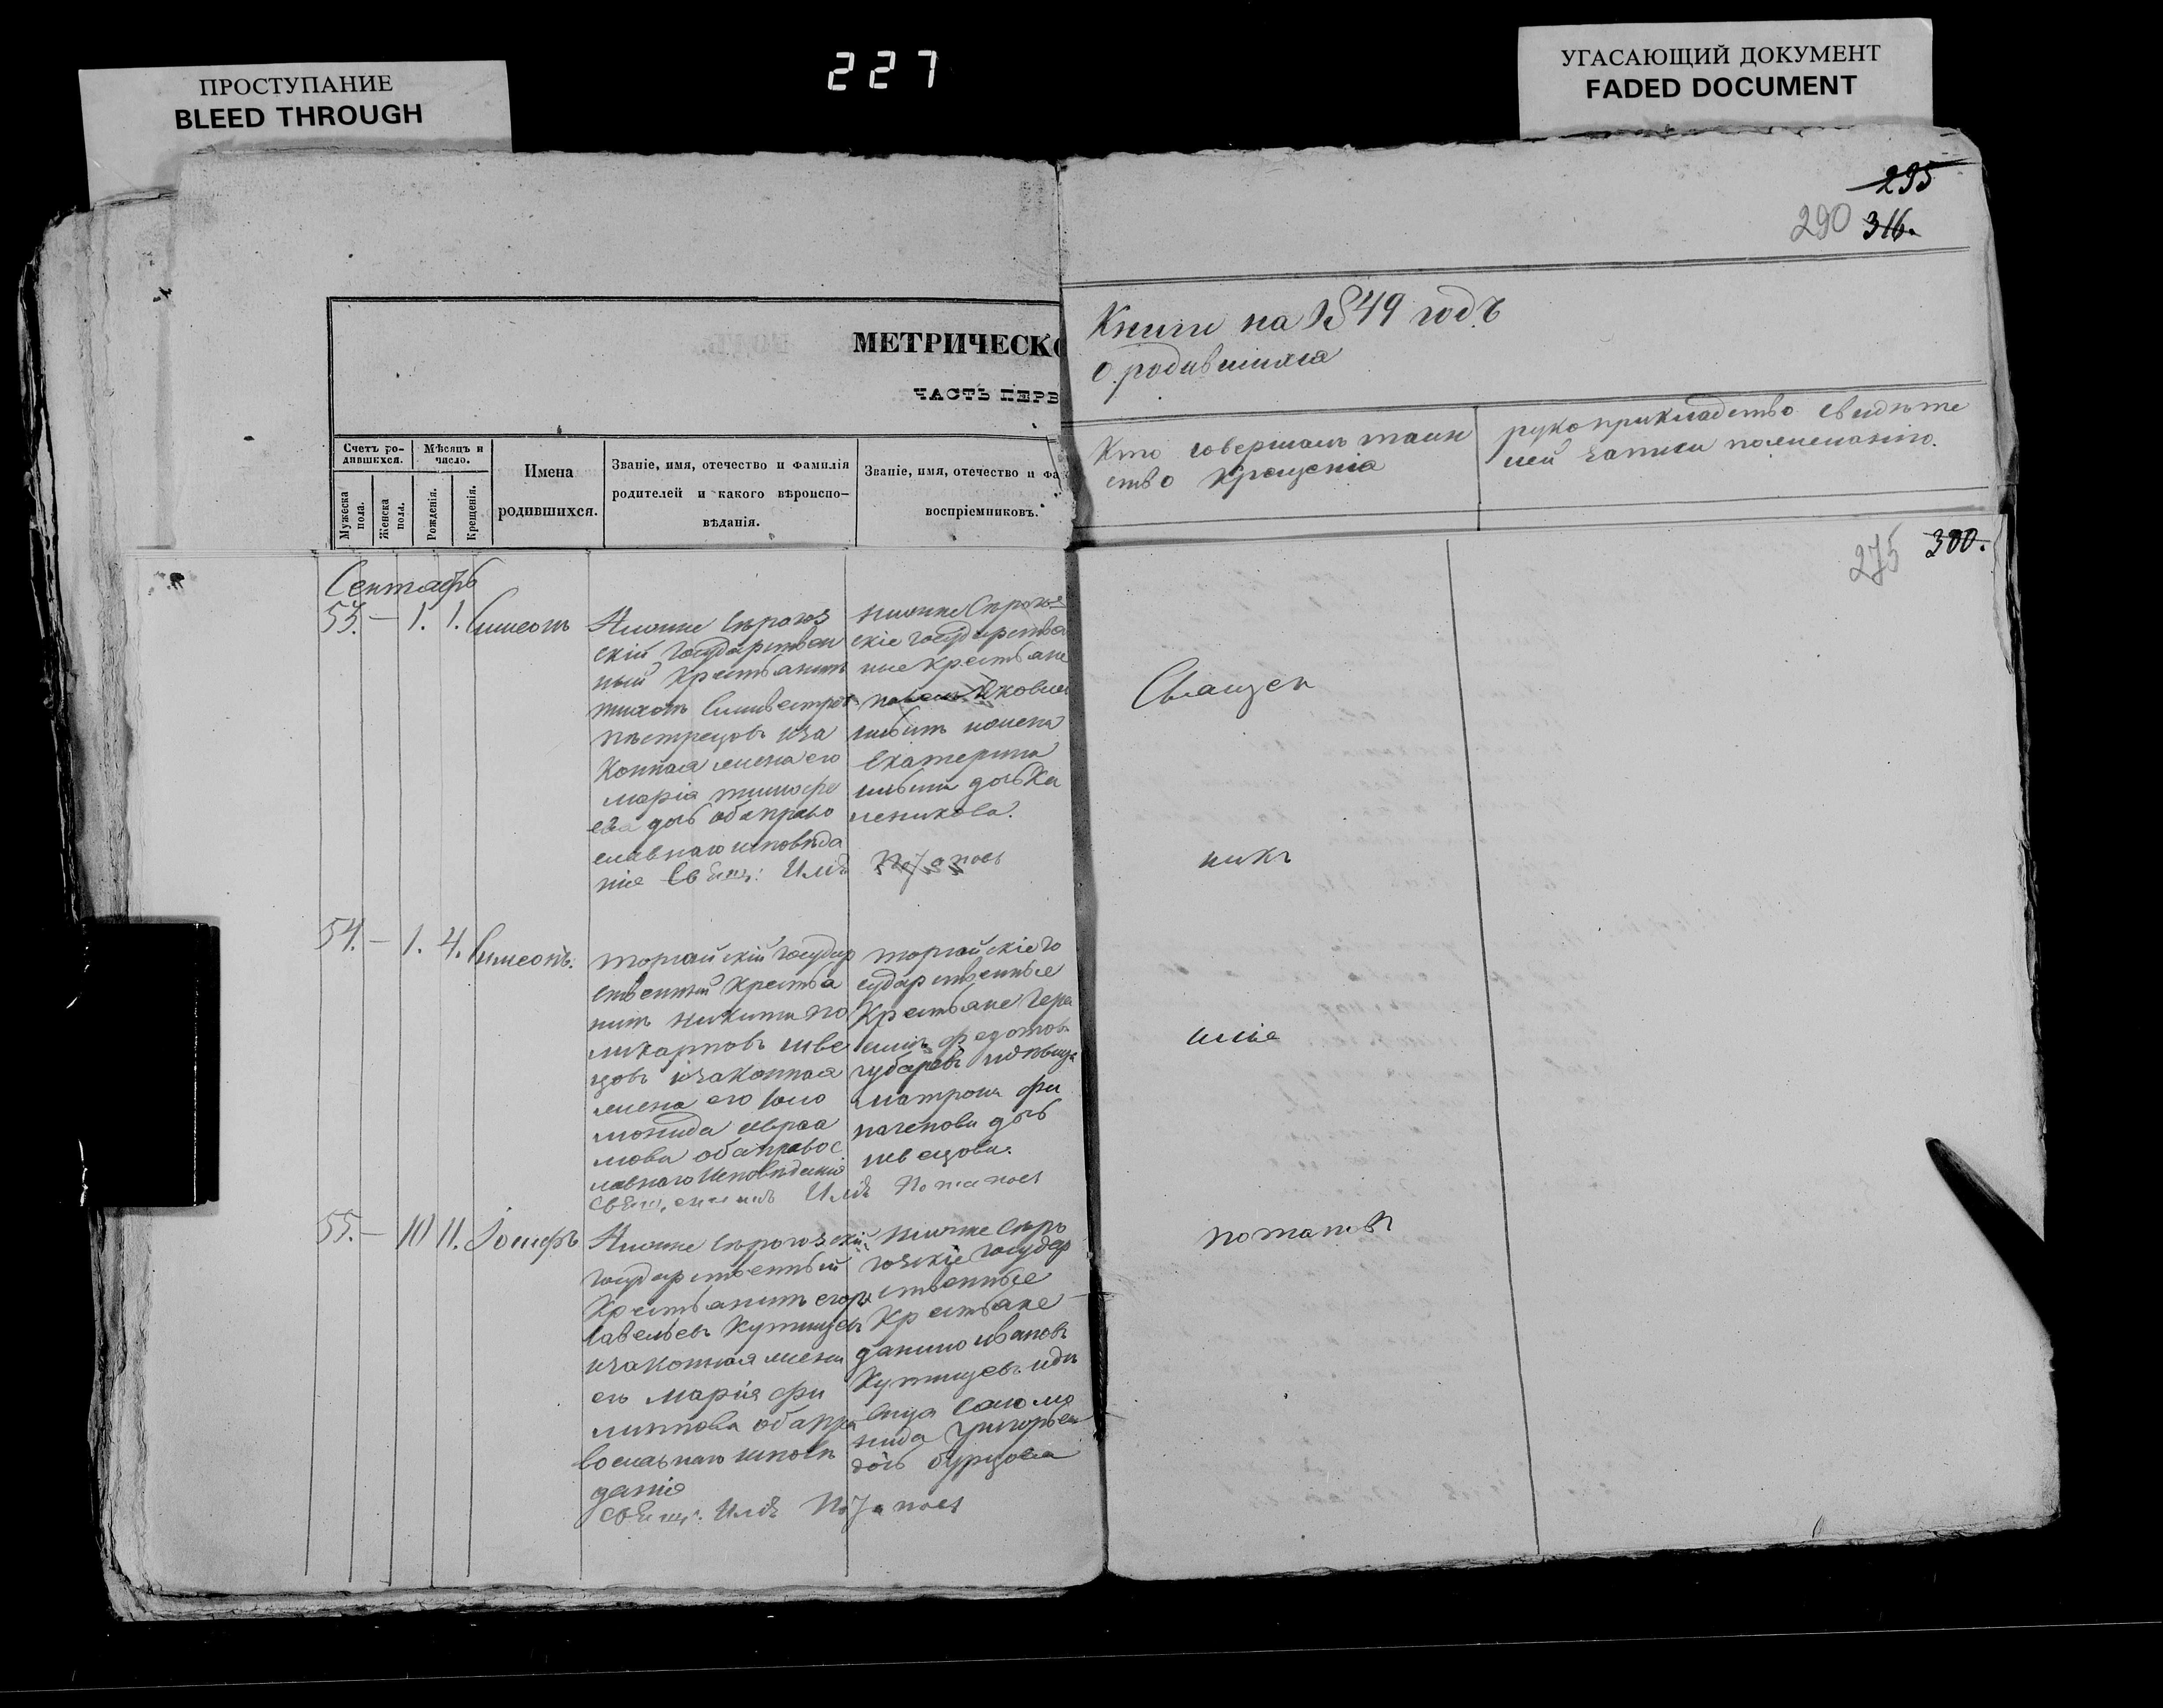 ПРОСТУПАНИЕ
BLEED THROUGH
227
УГАСАЮЩИЙ ДОКУМЕНТ
FADED DOCUMENT
295
290 316.
МЕТРИЧЕСКО
ЧАСТЬ ПЕРВ
Книги на 1849 годъ
о родившихся
Счетъ ро-
дившихся.
Мѣсяцъ и
число.
Мужеска
пола.
Женска
пола.
Рожденія.
Крещенія.
Имена
родившихся.
Званіе, имя, отечество и фамилія
родителей и какого вѣроиспо-
вѣданія.
Званіе, имя, отечество и фа
воспріемниковъ.
Кто совершалъ таин
ство Крещенія
рукоприкладство свидѣте
лей записи по желанію.
275 300.
Сентябрь
53. — 1. 1. Симеонъ
Нижне Сѣрогоз
скій Государствен
ный Крестьянинъ
тихонъ Силивестров
пѣстрецовъ иза
Конная жена его
марія тимофе
ева дочь оба право
славнаго исповѣда
нія
Нижне Сѣрогоз
скіе государствен
ные крестьяне
Екатерина
дочь Ка
леникова.
54. — 1. 4. Симеонъ.
торгайскій Государ
ственный Крестья
нинъ Никита по
ликарповъ шве
цовъ изаконная
жена его Соло
монида авраа
мова оба правос
лавнаго Исповѣданія
торгайскіе го
сударственные
Крестьяне Гера
симъ федотовъ
губаревъ идѣвица
матрона фи
дочь
швецова.
55. — 10 11. Іосифъ
Нижне Сѣрогозскій
Государственный
Крестьянинъ егоръ
Савельевъ Купинцевъ
изаконная жена
его марія фи
липпова оба пра
вославнаго исповѣ
данія
Нижне Сѣро
гозскіе государ
ственные
Крестьяне
данило ивановъ
Купинцевъ идѣ
вица Соломо
нида григорьева
дочь бурцова
Священ
никъ
илія
потаповъ